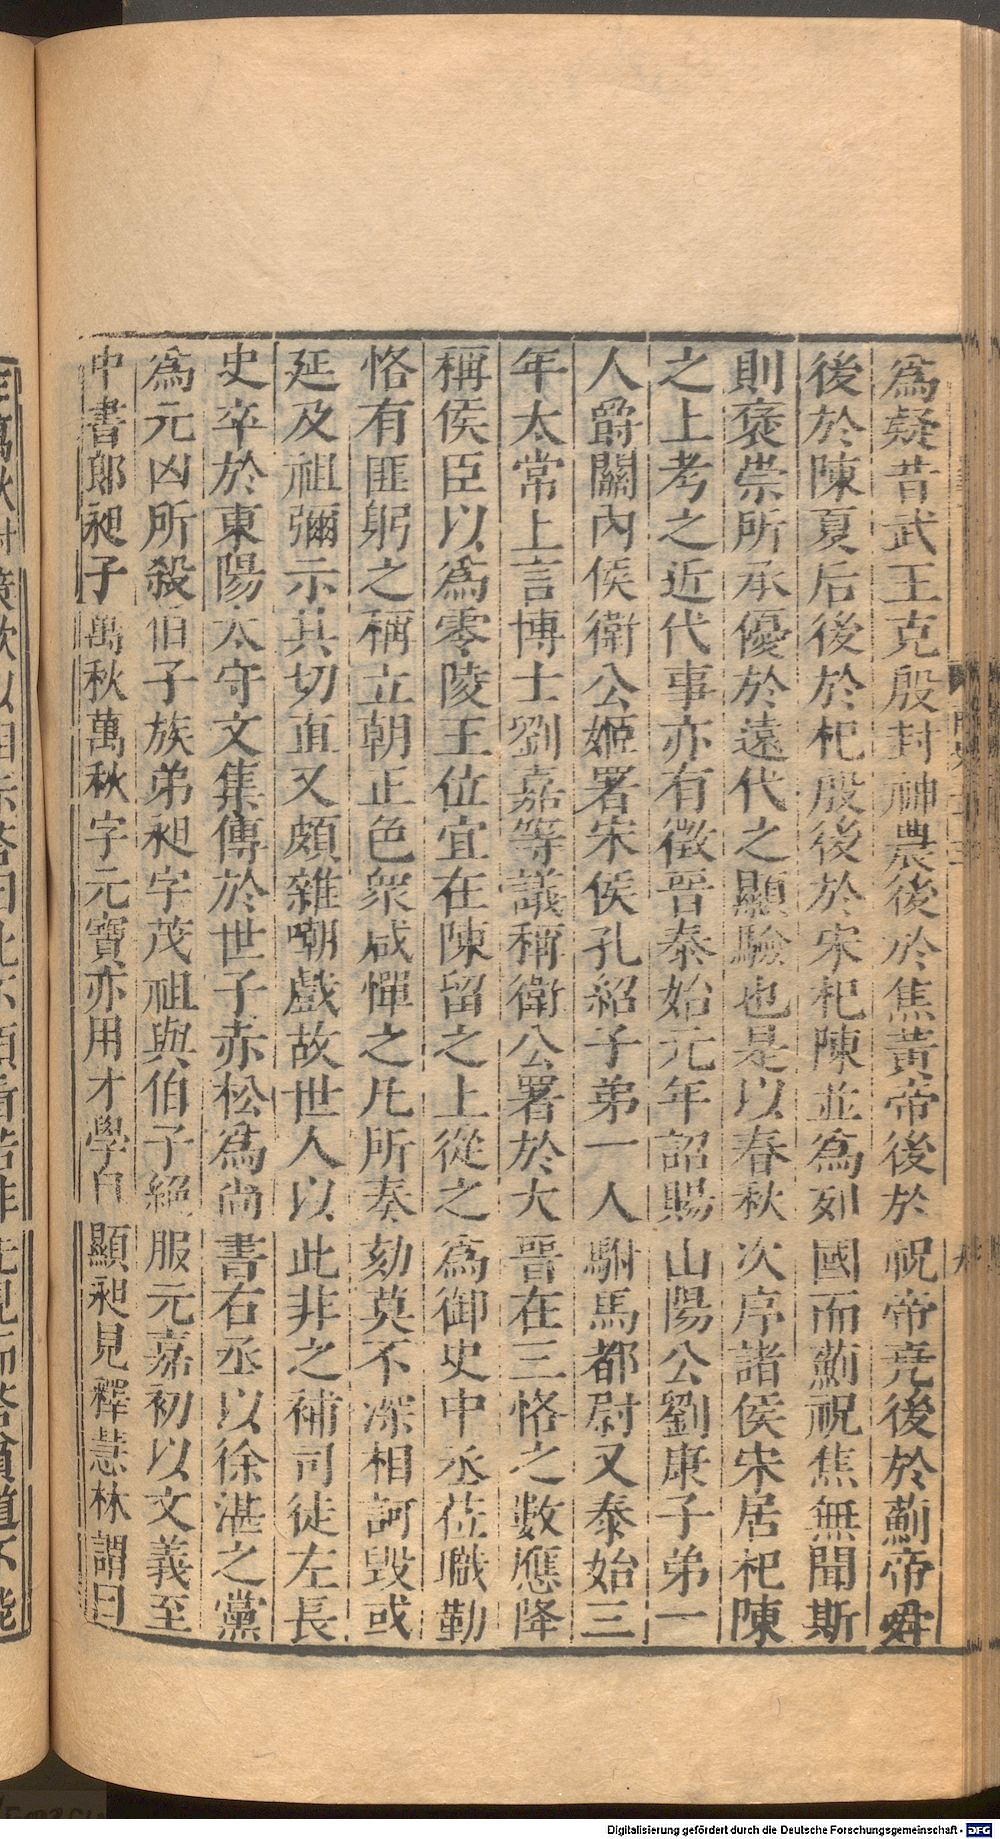 為疑昔武王克殷封神農後於焦黃帝後於祝帝堯後於薊帝舜
後於陳夏后後於杞殷後於宋杞陳並為列國而薊祝焦無聞斯
則褒崇所承優於遠代之顯驗也是以春秋次序諸侯宋居杞陳
之上考之近代事亦有徵晉泰始元年詔賜山陽公劉康子弟一
人爵關內侯衛公姬署宋侯孔紹子弟一人駙馬都尉又泰始三
年太常上言博士劉嘉等議稱衛公署於大晉在三恪之數應降
稱侯臣以為零陵王位宜在陳留之上從之為御史中丞莅職勤
恪有匪躬之稱立朝正色衆咸憚之凡所奏劾莫不深相訶毀或
延及祖彌示其切直又頗雜嘲戲故世人以此非之補司徒左長
史卒於東陽太守文集傳於世子赤松為尚書右丞以徐湛之黨
為元凶所殺伯子族弟昶字茂祖與伯子絕服元嘉初以文義至
中書郎昶子萬秋萬秋字元寶亦用才學自顯昶見釋慧林謂曰
Digitalisierung gefördert durch die Deutsche Forschungsgemeinschaft - DFG